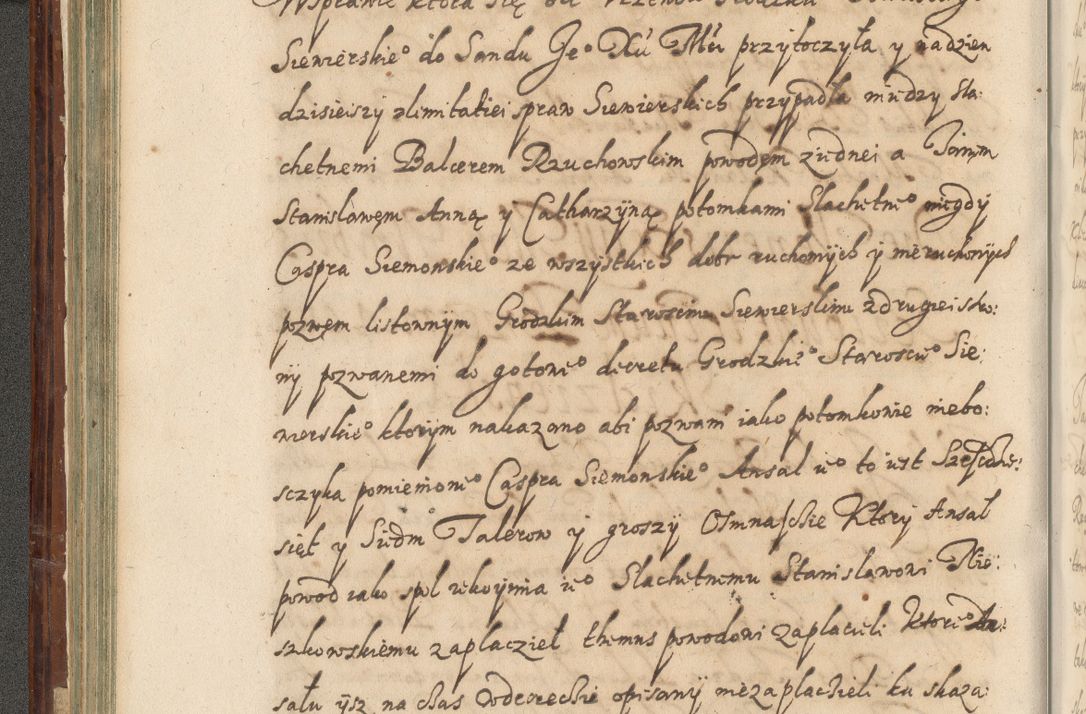 Wsprawie ktora się od Urzendu Grodzku
Siewierskie° do Sandu Je° Xu Mci przytoczyła y nadzien
dzisieiszy zlimitatiei spraw Siewierskich przypadła między sla:
chetnemi Balcerem Rzuchowskim powodęm ziednei a Janem
Stanisławęm Anną y Catharzyną potomkami Slachetne° niegdy
Caspra Siemonskie° ze wszystkich dobr ruchomych y nieruchomych
pozwęm listownym Grodzkim Staroscim Siewierskim zdrugiei stro:
ny pozwanemi do gotowe° decretu Grodzkie° Staroscie° Sie:
wierskie° ktorym nakazano abi pozwani iako potomkowie niebo:
sczyka pomienione° Caspra Siemonskie° Ansal ie° to iest Szescdzie:
siet y Siedm Talerow y groszy Osmnascie Ktory Ansal
powod iako spol rekoymia ie° Slachetnemu Stanislawowi Nie:
szkowskiemu zaplacził themus powodowi zaplacieli Ktore°
sału ysz na czas wdecrecie opisany niezaplacieli ku skaza: